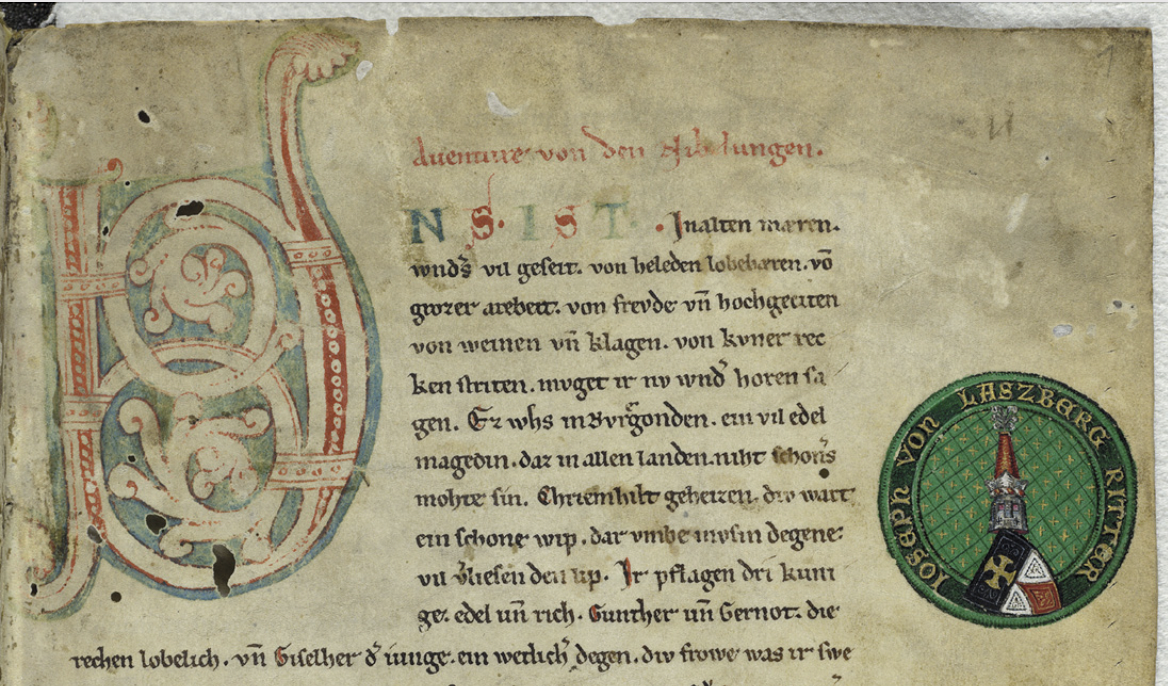 Auenture von den Nibelungen.
VNS. IST. In alten mæren.
wnds̉ vil geseit. von heleden lobebæren. vō
grozer arebeit. von frevde vn̄ hochgeciten
von weinen vn̄ klagen. von kvner rec
ken striten. mvget ir nv wnd̉ horen sa
gen. Ez whs in Bvrgonden. ein vil edel
magedin. daz in allen landen. niht schons̉
mohte sin. Chriemhilt geheizen. div wart
ein schone wip. dar vmbe mvsin degene
vil v̉liesen den lip. Ir pflagen dri kuni
ge. edel vn̄ rich. Gunther vn̄ Gernot. die
rechen lobelich. vn̄ Giselher d̉ iunge. ein wetlich̉ degen. div frowe was ir swe
IOSEPH VON LASZBERG RITTER